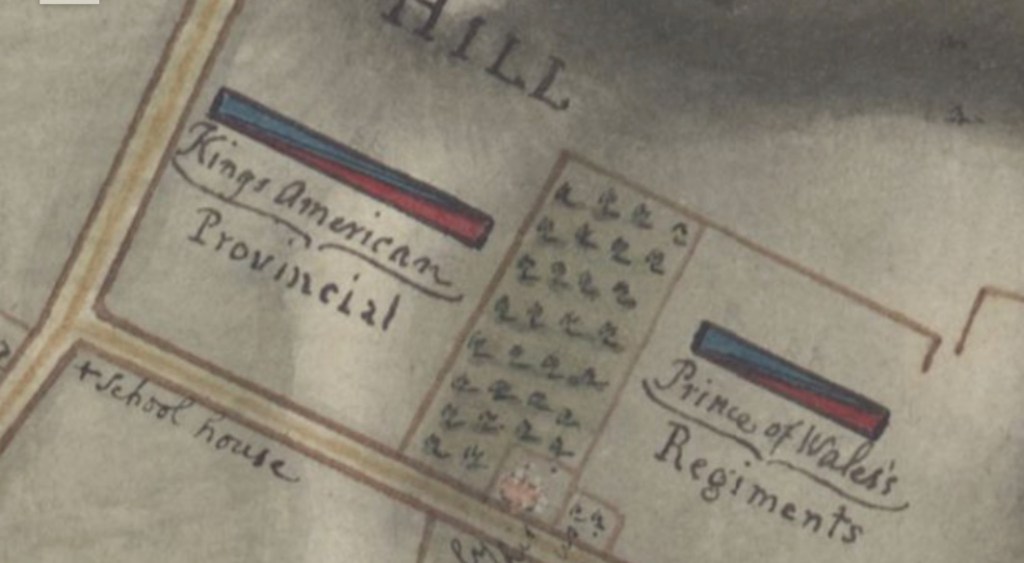 HILL
Kings American
Provincial
Prince of Wales's
Regiments
+ School house